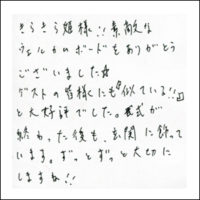 きらきら姫様!!素敵な
ウェルカムボードをありがとう
ございました☆
ゲストの皆様にも『似ている!!』
と大好評でした。式が
終わった後も、玄関に飾って
います。ずっとずっと大切に
しますね!!